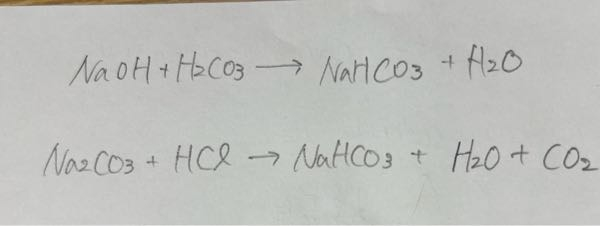 NaOH + H2CO3 → NaHCO3 + H2O
Na2CO3 + HCl → NaHCO3 + H2O + CO2